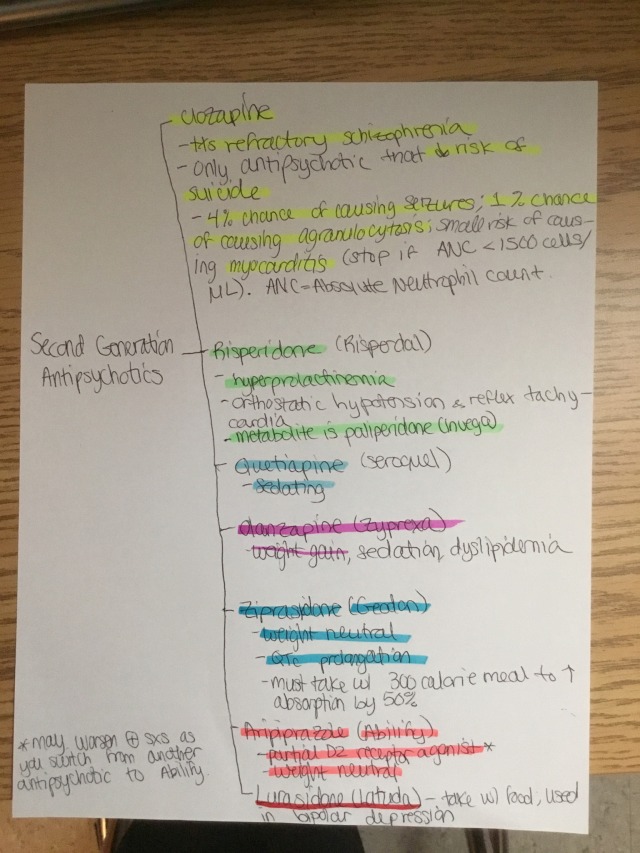 Clozapine
- tts refractory schizophrenia
- only antipsychotic that ↓ risk of
suicide
- 4% chance of causing seizures; 1% chance
of causing agranulocytosis; small risk of caus-
ing myocarditis (stop if ANC < 1500 cells/
ML). ANC = Absolute Neutrophil Count.
Second Generation
Antipsychotics
Risperidone (Risperdal)
- hyperprolactinemia
- orthostatic hypotension & reflex tachy-
cardia
- metabolite is paliperidone (Invega)
Quetiapine (seroquel)
- sedating
olanzapine (Zyprexa)
- weight gain, sedation, dyslipidemia
Ziprasidone (Geodon)
- weight neutral
- QTc prolongation
- must take w/ 300 calorie meal to ↑
absorption by 50%
Aripiprazole (Abilify)
- partial D2 receptor agonist *
- weight neutral
* may worsen ⊕ sxs as
you switch from another
antipsychotic to Abilify
Lurasidone (Latuda) - take w/ food, used
in bipolar depression